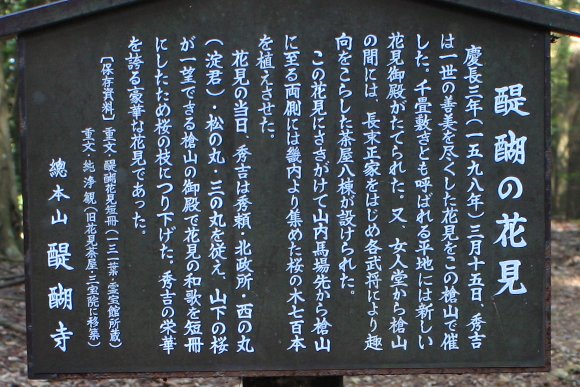 醍醐の花見
慶長三年（一五九八年）三月十五日、秀吉
は一世の善美を尽くした花見をこの槍山で催
した。千畳敷きとも呼ばれる平地には新しい
花見御殿がたてられた。又、女人堂から槍山
の間には、長束正家をはじめ各武将により趣
向をこらした茶屋八棟が設けられた。
この花見にさきがけて山内馬場先から槍山
に至る両側には畿内より集めた桜の木七百本
を植えさせた。
花見の当日、秀吉は秀頼・北政所・西の丸
（淀君）・松の丸・三の丸を従え、山下の桜
が一望できる槍山の御殿で花見の和歌を短冊
にしたため桜の枝につり下げた。秀吉の栄華
を誇る豪華な花見であった。
〔保存資料〕重文・醍醐花見短冊（一三一葉・霊宝館所蔵）
重文・純浄観（旧花見茶屋・三宝院に移築）
總本山 醍醐寺